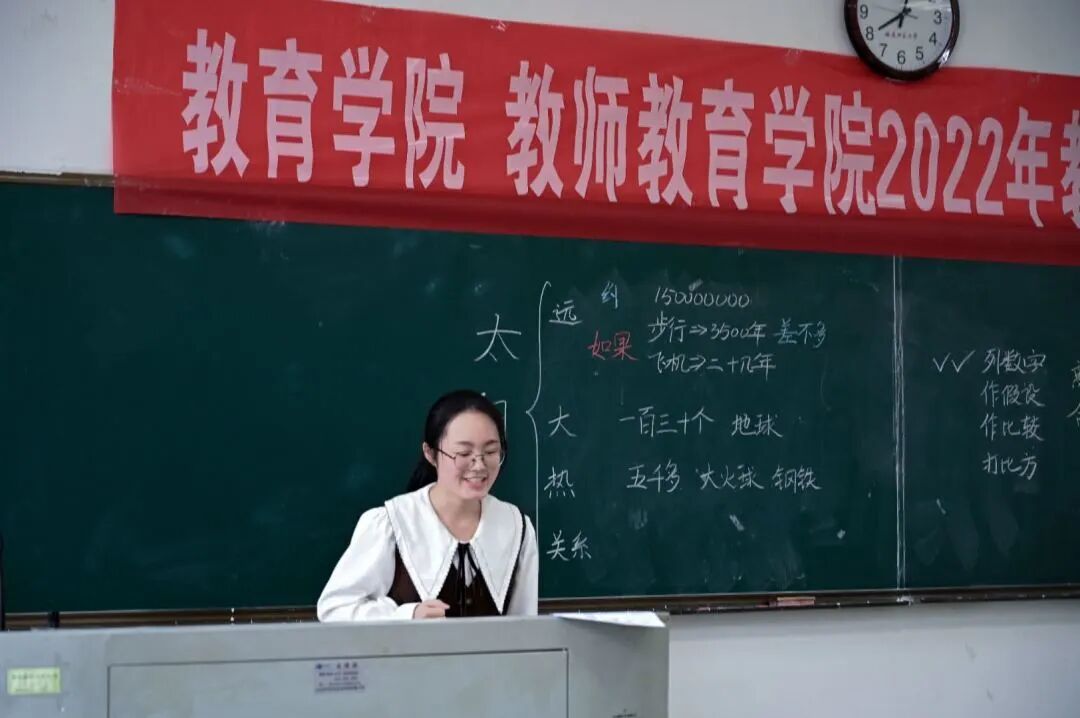 教育学院 教师教育学院2022年教
太
远 约 150000000
如果 步行⇒3500年 差不多
飞机⇒二十几年
大 一百三十个 地球
热 五千多 大火球 钢铁
关系
√√ 列数字
作假设
作比较
打比方
3
4
5
6
7
8